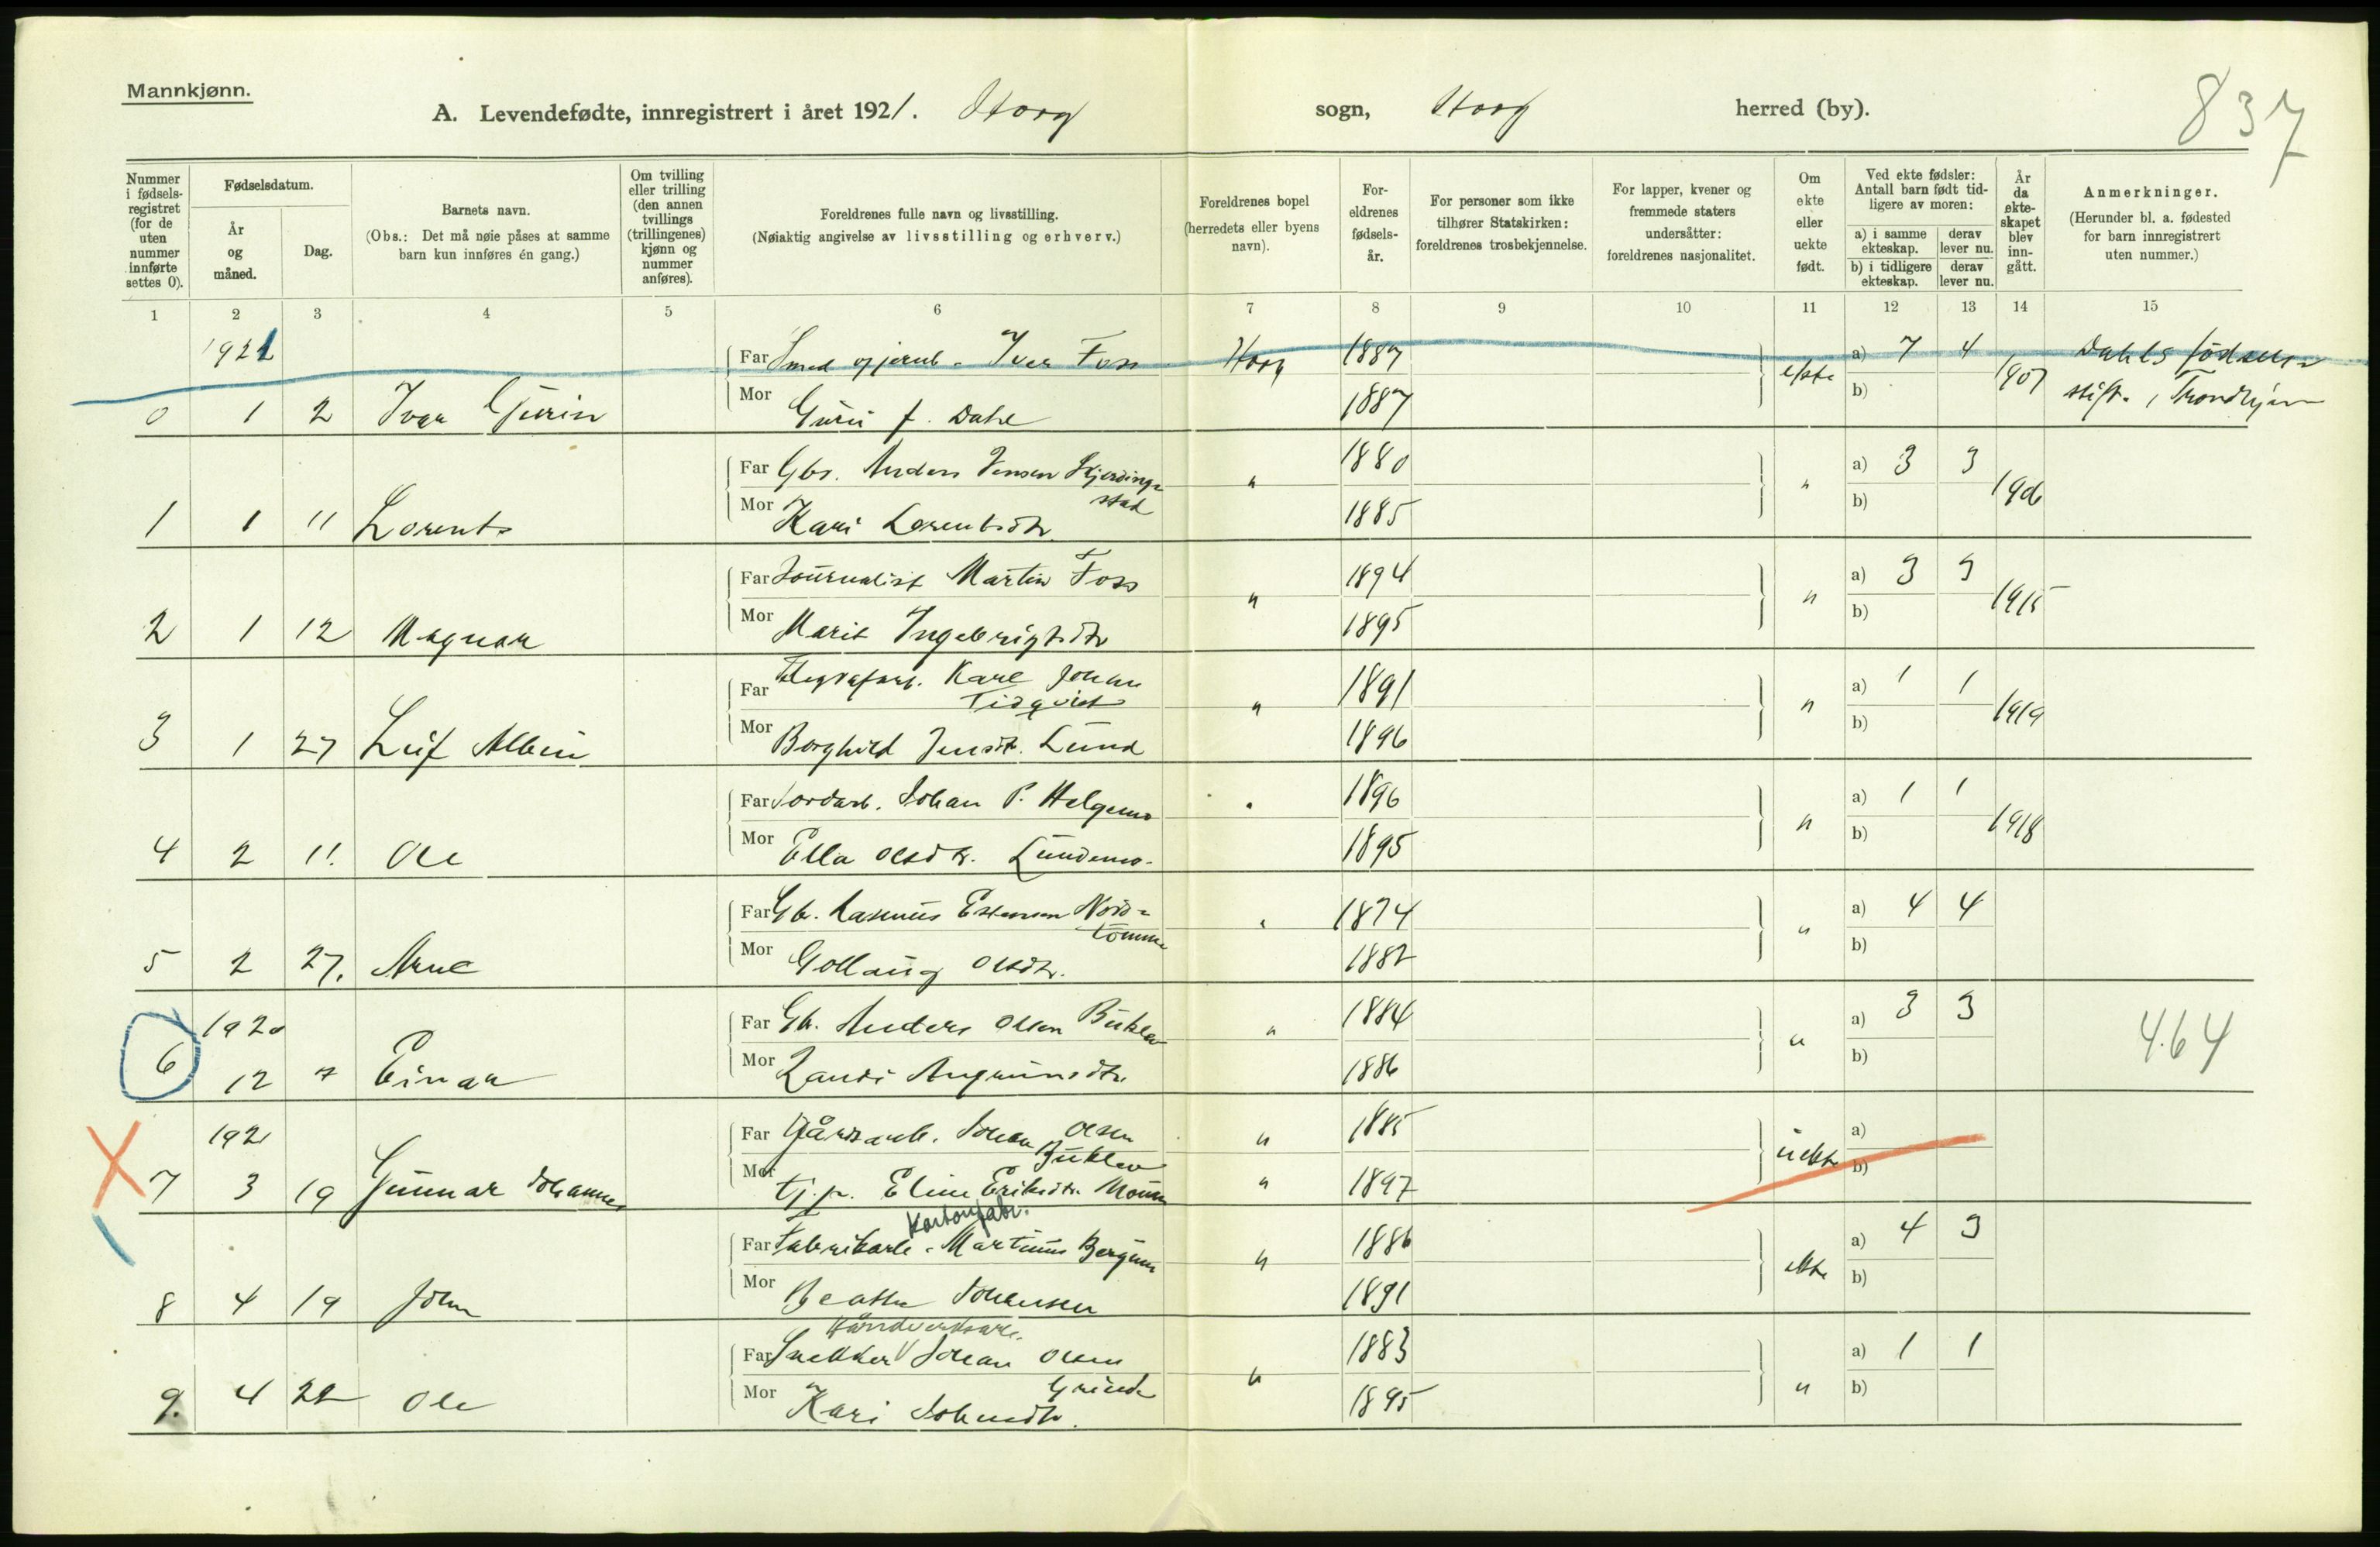 Mannkjønn.
A. Levendefødte, innregistrert i året 1921. Horg sogn, Horg herred (by).
837
Nummer i fødsels-registret (for de uten nummer innførte settes 0).
Fødselsdatum.
År og måned.
Dag.
Barnets navn.
(Obs.: Det må nøie påses at samme barn kun innføres én gang.)
Om tvilling eller trilling (den annen tvillings (trillingenes) kjønn og nummer anføres).
Foreldrenes fulle navn og livsstilling.
(Nøiaktig angivelse av livsstilling og erhverv.)
Foreldrenes bopel (herredets eller byens navn).
For-eldrenes fødsels-år.
For personer som ikke tilhører Statskirken: foreldrenes trosbekjennelse.
For lapper, kvener og fremmede staters undersåtter: foreldrenes nasjonalitet.
Om ekte eller uekte født.
Ved ekte fødsler: Antall barn født tid-ligere av moren:
a) i samme ekteskap.
derav lever nu.
b) i tidligere ekteskap.
derav lever nu.
År da ekte-skapet blev inn-gått.
Anmerkninger.
(Herunder bl. a. fødested for barn innregistrert uten nummer.)
1 2 3 4 5 6 7 8 9 10 11 12 13 14 15
1921
Far Smed Iver Foss Horg 1887 ekte a) 7 4 1907 Dahls fødsels-
0 1 2 Ivar Gjurin Mor Guri f. Dahl 1887 b) stift. i Trondhjem
Far Gbr. Anders Jensen Skjerdings- " 1880 " a) 3 3 1906
stad
1 1 11 Lorents Mor Kari Lorentsdtr. 1885 b)
Far Journalist Martin Foss " 1894 " a) 3 3 1915
2 1 12 Magnar Mor Marit Ingebrigtsdtr 1895 b)
Far Karl Johan " 1891 " a) 1 1 1919
Tidqvist
3 1 27 Leif Albin Mor Borghild Jensdt. Lund 1896 b)
Far Jordarb. Johan P. Helgemo " 1896 " a) 1 1 1918
4 2 11. Ole Mor Ella Olsdtr. Lundemo. 1895 b)
Far Gb. Rasmus Estensen Nord- " 1874 " a) 4 4
tømme
5 2 27. Arne Mor Gollaug Olsdtr. 1882 b)
1920
Far Gb. Anders Olsen Buklev " 1884 " a) 3 3 464
6 12 7 Einar Mor Randi Arngrimsdtr. 1886 b)
1921
Far Gårdsarb. Johan Olsen " 1885 uekte a)
Buklev
7 3 19 Gunnar Johannes Mor tj.p. Eline Eriksdtr. Moum " 1897 b)
Kartonfabr.
Far Fabrikarb. Martinus Bergum " 1886 ekte a) 4 3
8 4 19 John Mor Beathe Johansen 1891 b)
Håndverksarb.
Far Snekker Johan Olsen " 1883 " a) 1 1
Grinde
9. 4 22 Ole Mor Kari Johnsdtr. 1895 b)